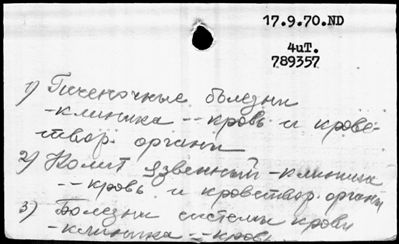 17.9.70.ND
4uT.
789357
1) Печеночные болезни
-клиника -- кровь и крове-
твор. органы
2) Колит язвенный -клиника
-- кровь и кроветвор. органы
3) Болезни системы крови
-клиника -- кровь